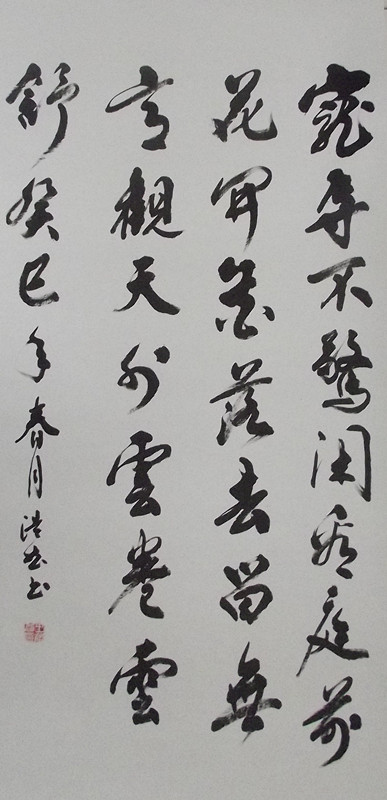 寵辱不驚閑看庭前
花開花落去留無
意觀天外雲卷雲
舒癸巳年春月书